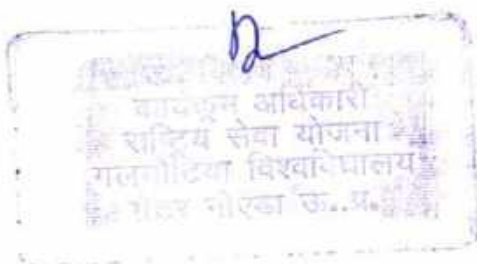 कार्यक्रम अधिकारी
राष्ट्रिय सेवा योजना
गलगोटिया विश्वविधालय
ग्रेटर नोएडा ऊ..प्र.